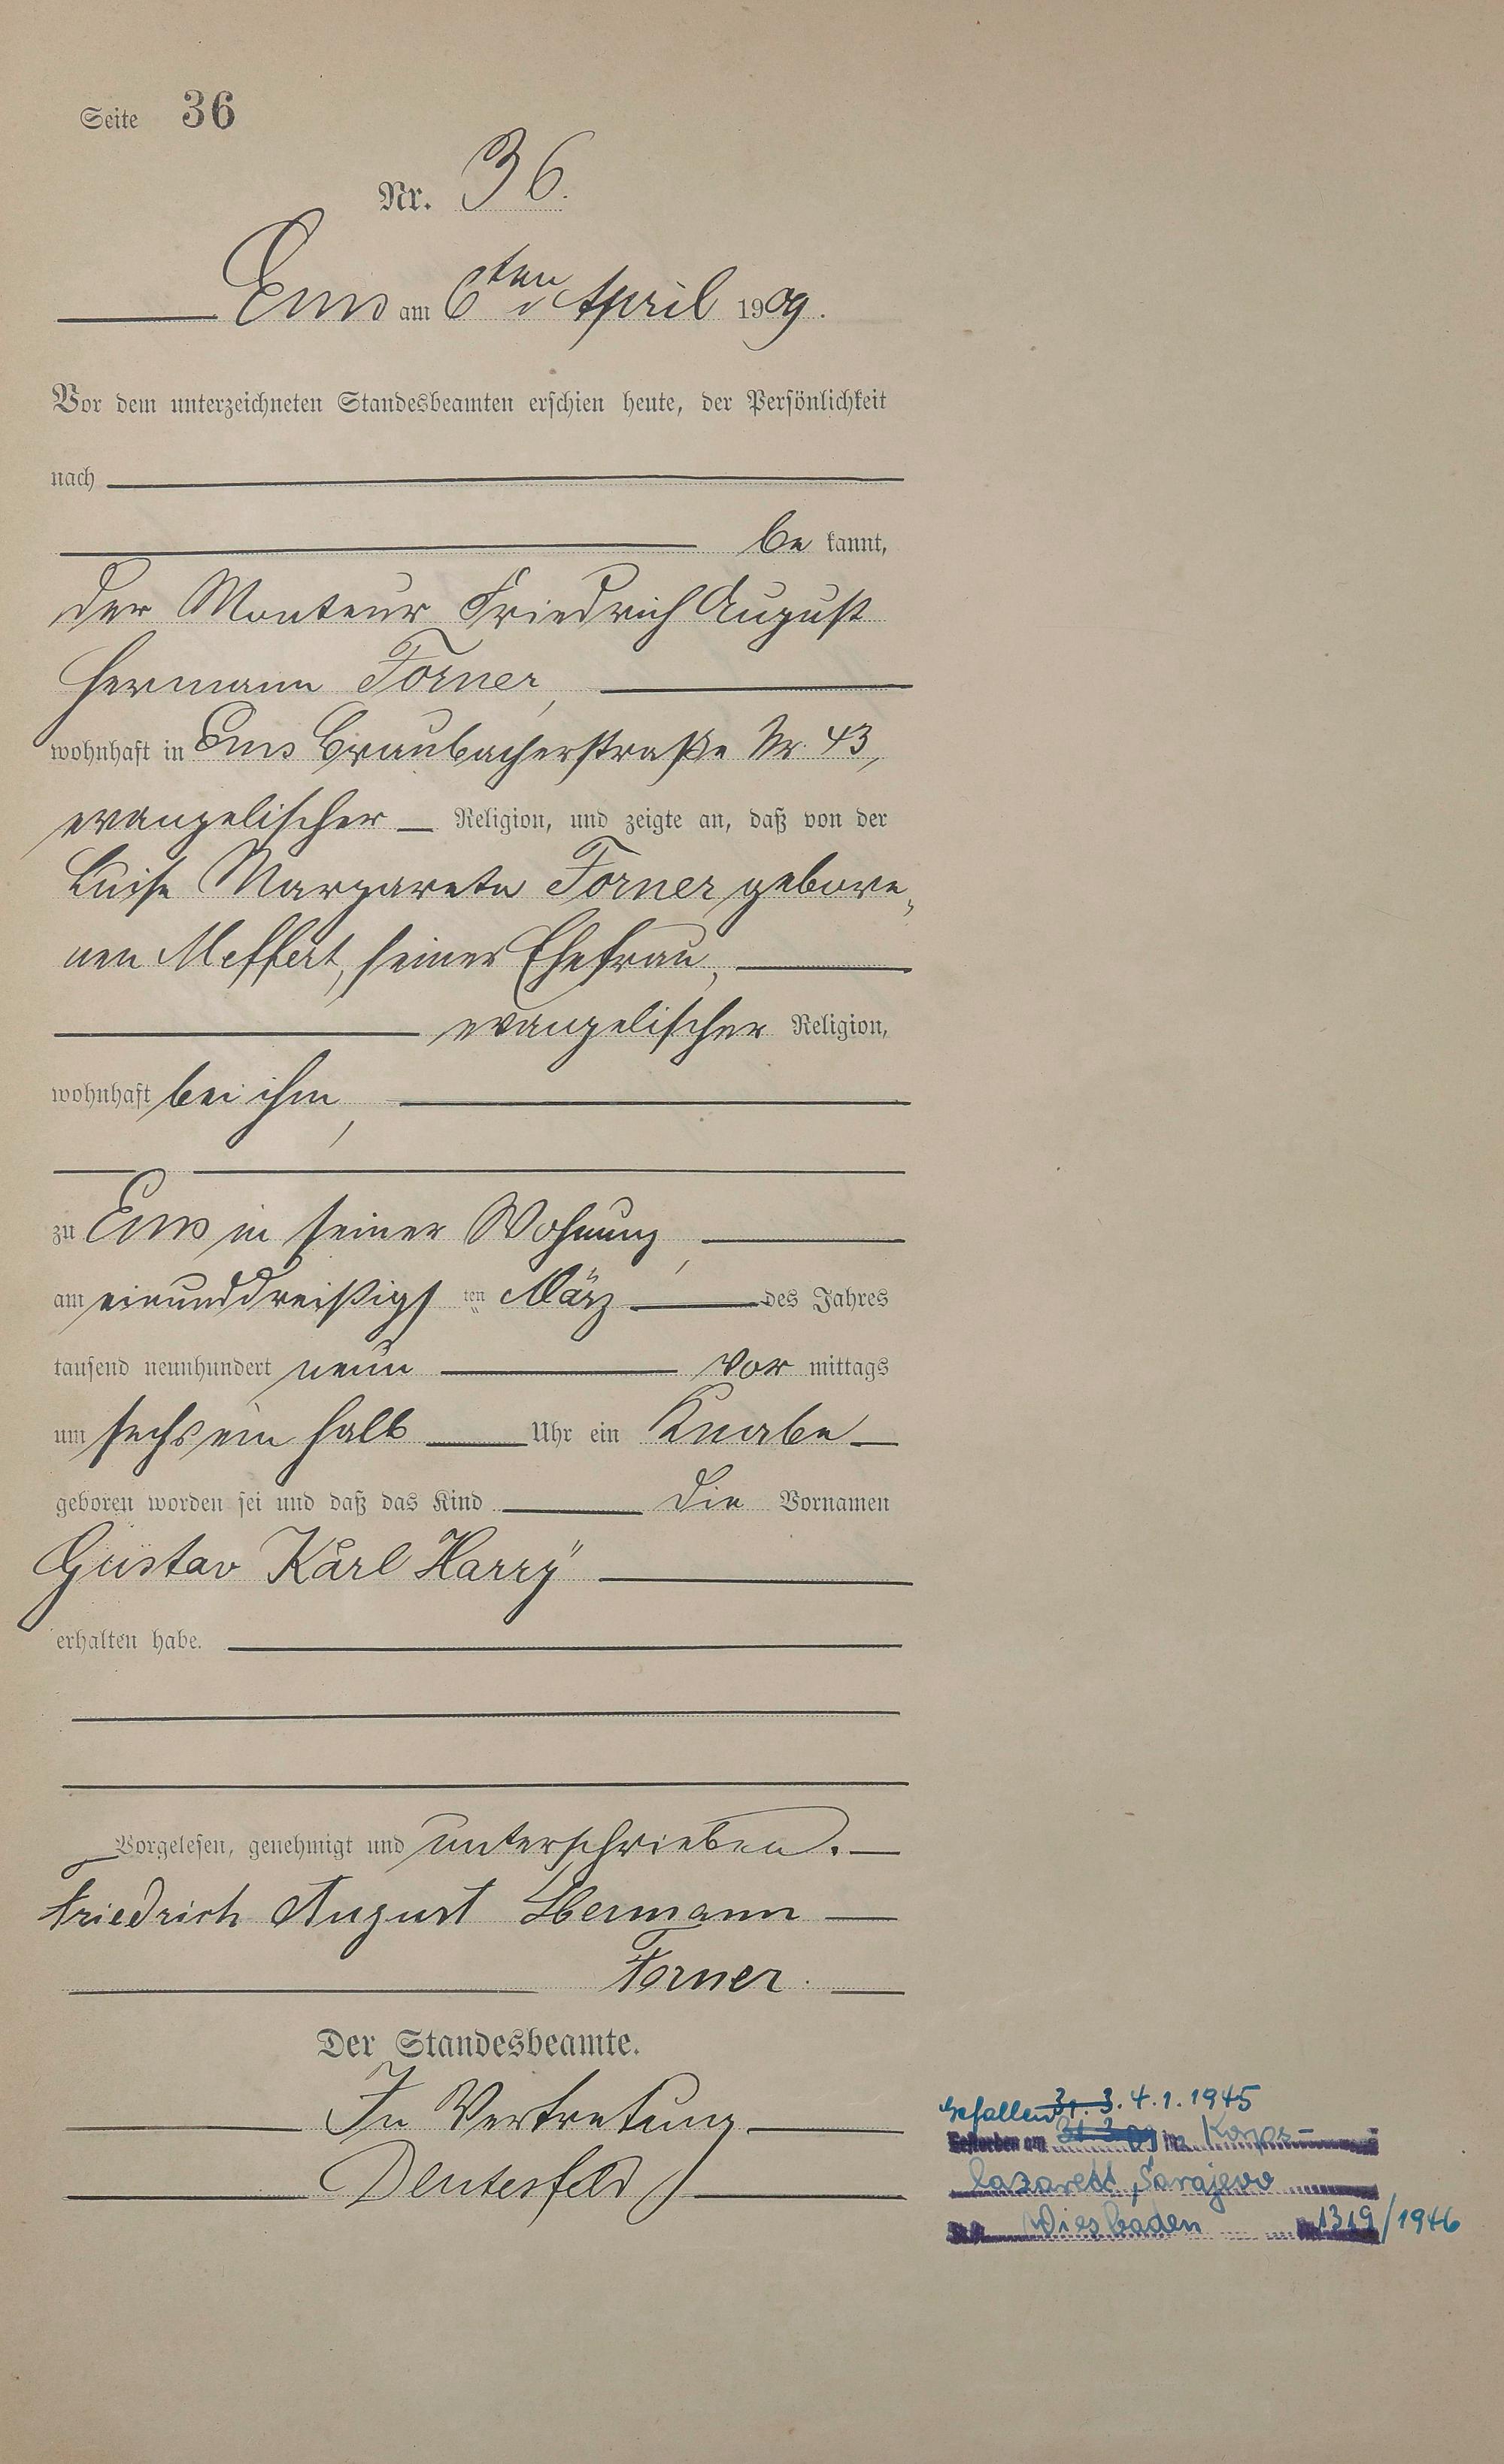 Seite 36
Nr. 36.
Ems am 6ten April 1909.
Vor dem unterzeichneten Standesbeamten erschien heute, der Persönlichkeit
nach
be kannt,
der Monteur Friedrich August
Hermann Forner,
wohnhaft in Ems Braubacherstraße Nr. 43,
evangelischer Religion, und zeigte an, daß von der
Luise Margarete Forner gebore„
nen Meffert, seiner Ehefrau,
evangelischer Religion,
wohnhaft bei ihm,
zu Ems in seiner Wohnung,
am einunddreißigs ten März des Jahres
tausend neunhundert neun vor mittags
um sechs ein halb Uhr ein Knabe
geboren worden sei und daß das Kind die Vornamen
Gustav Karl Harry
erhalten habe.
Vorgelesen, genehmigt und unterschrieben.
Friedrich August Hermann
Forner.
Der Standesbeamte.
In Vertretung
Gefallen 31. 3. 4.1.1945
Gestorben am 31.3.09 im Korps-
lazarett, Sarajevo
St.A. Wiesbaden Nr. 1319/1946